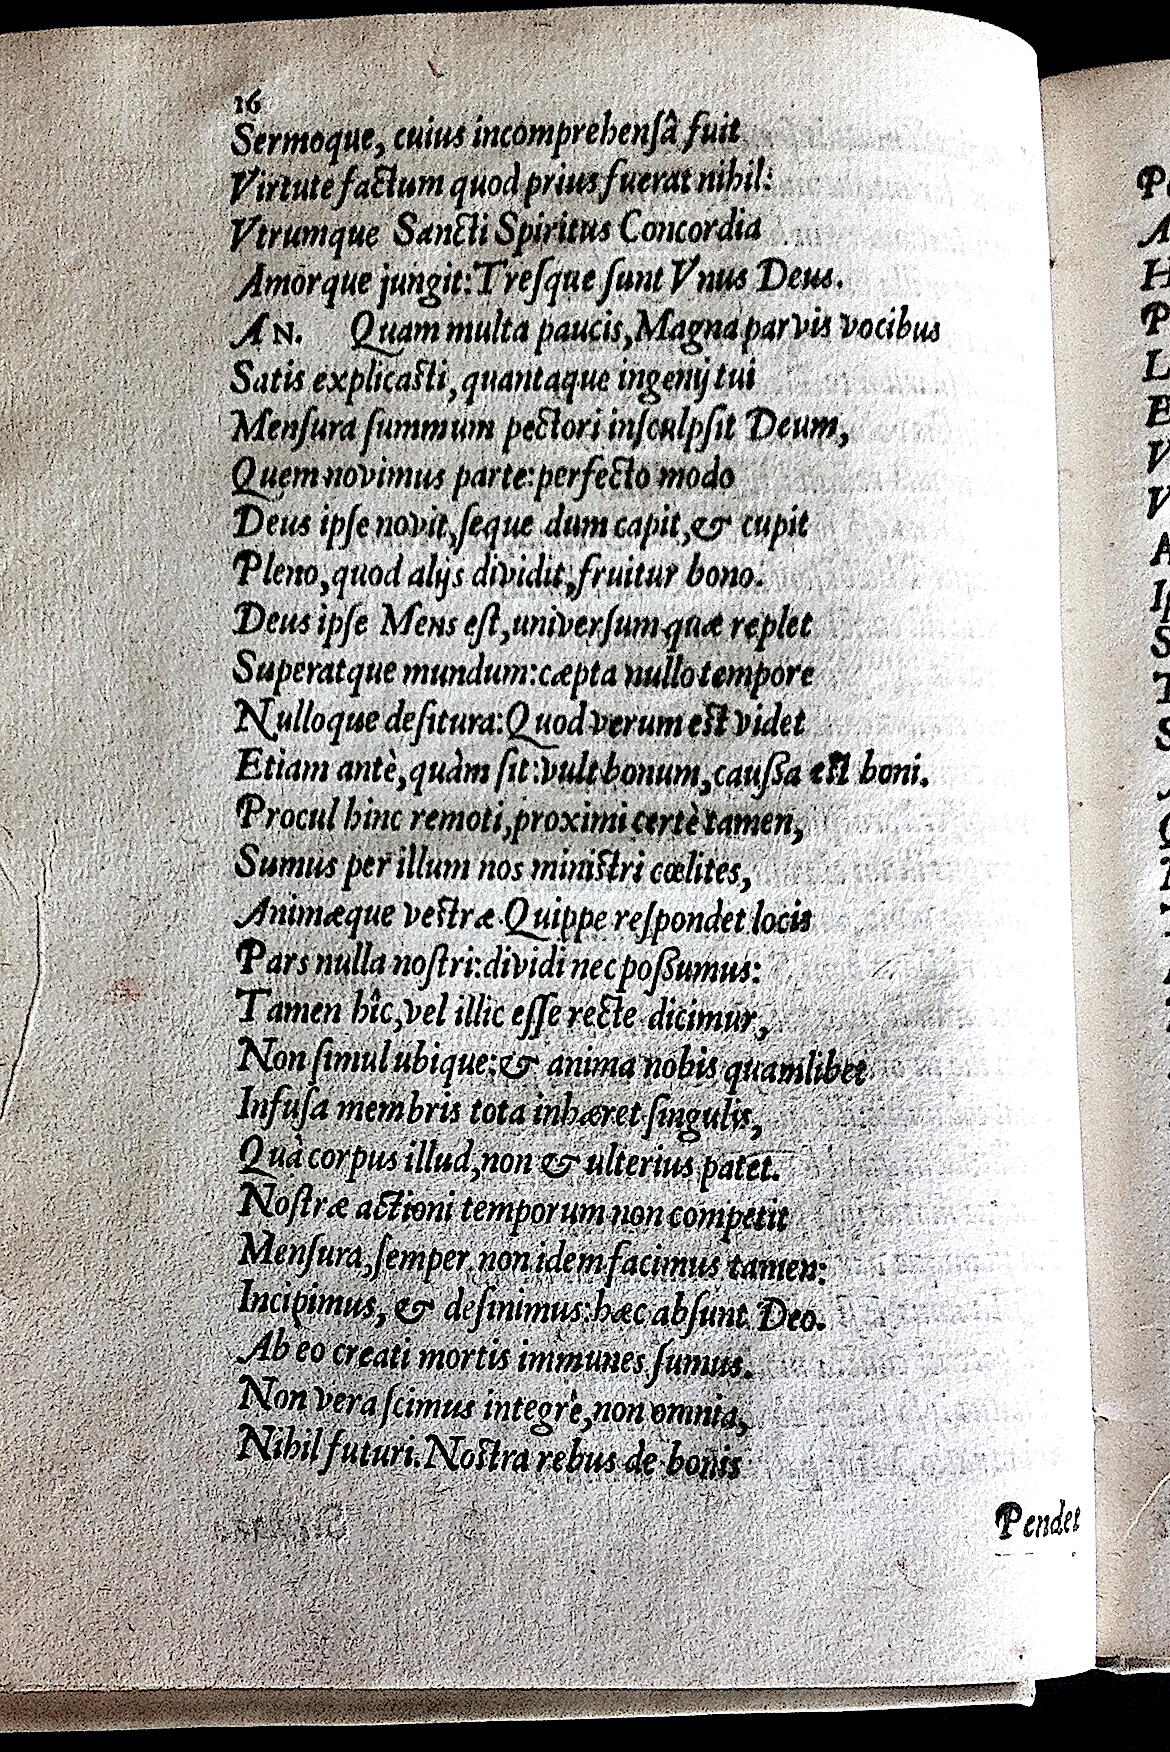 16
Sermoque, cuius incomprehensâ fuit
Virtute factum quod prius fuerat nihil:
Vtrumque Sancti Spiritus Concordia
Amorque jungit: Tresque sunt Vnus Deus.
AN. Quam multa paucis, Magna parvis vocibus
Satis explicasti, quantaque ingenij tui
Mensura summum pectori insculpsit Deum,
Quem novimus parte: perfecto modo
Deus ipse novit, seque dum capit, & cupit
Pleno, quod alijs dividit, fruitur bono.
Deus ipse Mens est, universum quæ replet
Superatque mundum: cæpta nullo tempore
Nulloque desitura: Quod verum est videt
Etiam antè, quàm sit: vult bonum, caussa est boni.
Procul hinc remoti, proximi certè tamen,
Sumus per illum nos ministri cœlites,
Animæque vestræ. Quippe respondet locis
Pars nulla nostri: dividi nec possumus:
Tamen hîc, vel illic esse recte dicimur,
Non simul ubique: & anima nobis quamlibet
Infusa membris tota inhæret singulis,
Quà corpus illud, non & ulterius patet.
Nostræ actioni temporum non competit
Mensura, semper non idem facimus tamen:
Incipimus, & desinimus: hæc absunt Deo.
Ab eo creati mortis immunes sumus.
Non vera scimus integrè, non omnia,
Nihil futuri. Nostra rebus de bonis
Pendet